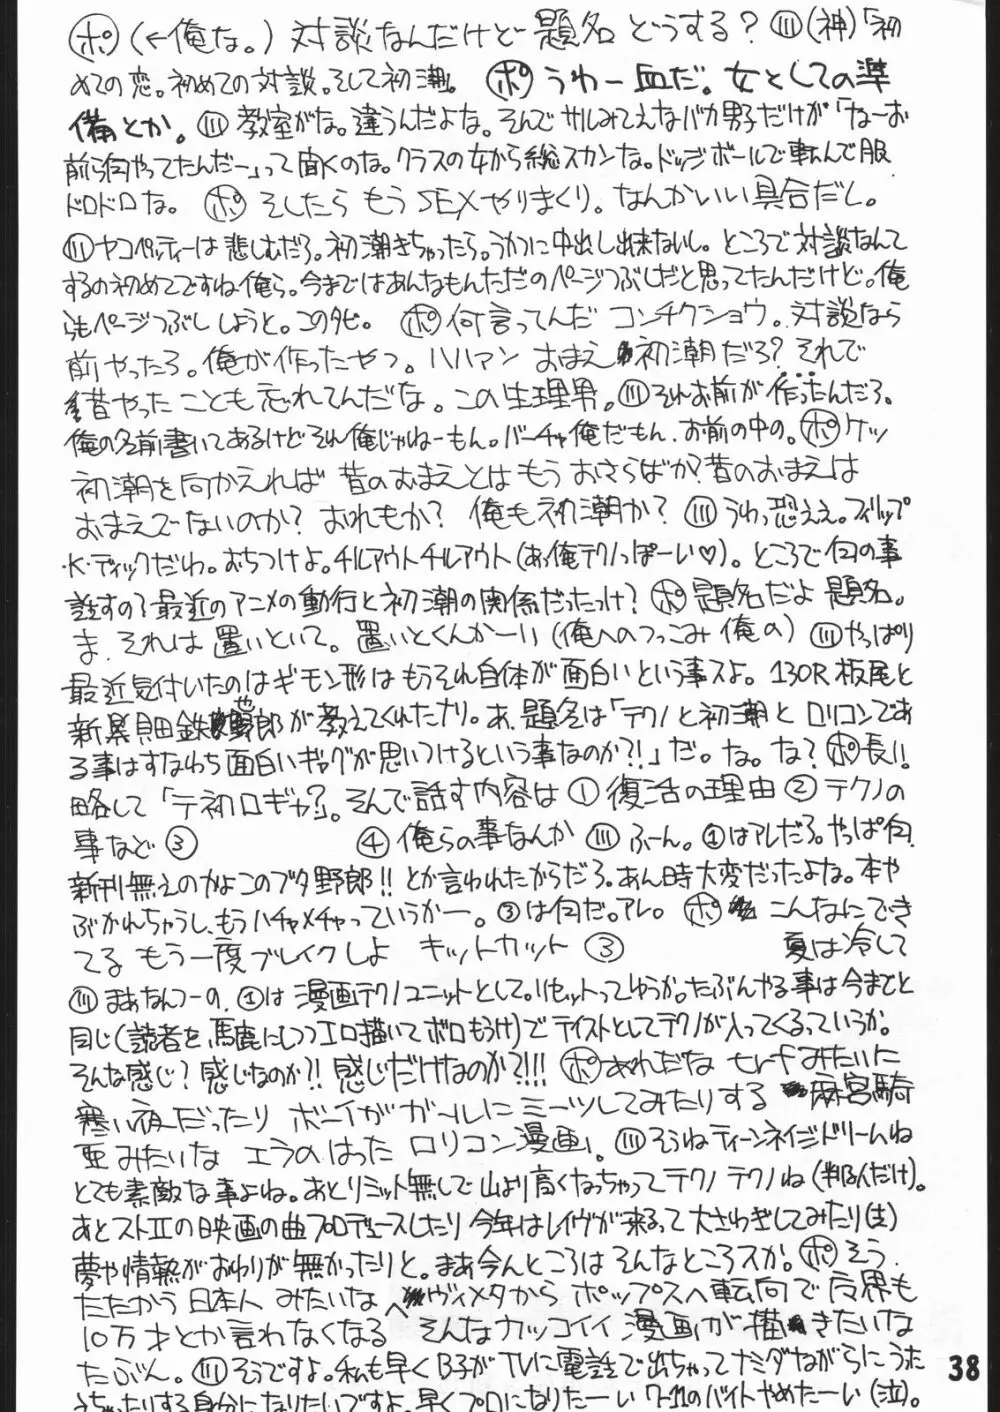 ポ(←俺な。)対談なんだけど題名どうする?川(神)「初
めての恋。初めての対談。そして初潮」。ポうわー血だ。女としての準
備とか。川教室がな。違うんだよな。そんでサルみてえなバカ男子だけが「なーお
前ら何やってたんだー」って聞くのな。クラスの女から総スカンな。ドッジボールで転んで服
ドロドロな。ポそしたらもうSEXやりまくり。なんかいい具合だし。
川ヤコペッティーは悲しむだろ。初潮きちゃったら。うかつに中出し出来ないし。ところで対談なんて
するの初めてですね俺ら。今まではあんなもんただのページつぶしだと思ってたんだけど。俺
らもページつぶししようと。このタビ。ポ何言ってんだコンチクショウ。対談なら
前やったろ。俺が作ったやつ。ハハアンおまえ初潮だろ?それで
昔やったことも忘れてんだな。この生理男。川それお前が作ったんだろ。
俺の名前書いてあるけどそれ俺じゃねーもん。バーチャ俺だもん。お前の中の。ポケッ
初潮を向かえれば昔のおまえとはもうおさらばか?昔のおまえは
おまえでないのか?おれもか?俺も初潮か?川うわっ恐ええ。フィリップ
・K・ディックだわ。おちつけよ。チルアウトチルアウト(あっ俺テクノっぽーい♡)。ところで何の事
話すの?最近のアニメの動行と初潮の関係だったっけ?ポ題名だよ題名。
ま、それは置いといて。置いとくんかーい(俺へのつっこみ俺の)川やっぱり
最近気付いたのはギモン形はもうそれ自体が面白いという事スよ。130R板尾と
新黒貝田鉄野郎が教えてくれたナリ。あ、題名は「テクノと初潮とロリコンであ
る事はすなわち面白いギャグが思いつけるという事なのか?!」だ。な。な?ポ長い!
略して「テ初ロギャ?」。そんで話す内容は①復活の理由②テクノの
事など③ ④俺らの事なんか川ふーん。①はアレだろ。やっぱ何、
新刊無えのかよこのブタ野郎!!とか言われたからだろ。あん時大変だったよな。本や
ぶかれちゃうし、もうハチャメチャっていうかー。③は何だ。アレ。ポこんなにでき
てるもう一度ブレイクしよ キットカット ③ 夏は冷して
川まあなんつーの、①は漫画テクノユニットとして。リセットってゆうか。たぶんやる事は今までと
同じ(読者を馬鹿にしつつエロ描いてボロもうけ)でテイストとしてテクノが入ってくるっていうか。
そんな感じ?感じなのか?!感じだけなのか?!!!ポあれだなtrfみたいに
寒い夜だったりボーイがガールにミーツしてみたりする麻宮騎
亜みたいなエラのはったロリコン漫画」。川そうねティーンネイジドリームね
とても素敵な事よね。あとリミット無しで山より高くなっちゃってテクノテクノね(判る人だけ)。
あとストⅡの映画の曲プロデュースしたり今年はレイヴが来るって大さわぎしてみたり(玄)
夢や情熱がおわりが無かったりと。まあ今んところはそんなところスか。ポそう。
たたかう日本人みたいなヘヴィメタからポップスへ転向で度界も
10万才とか言わなくなるそんなカッコイイ漫画が描きたいな
たぶん。川そうですよ。私も早くB子がTVに電話で出ちゃってナミダながらにうた
うちゃったりする身分になりたいですよ。早くプロになりたーいワ-11のバイトやめたーい(泣)。
38